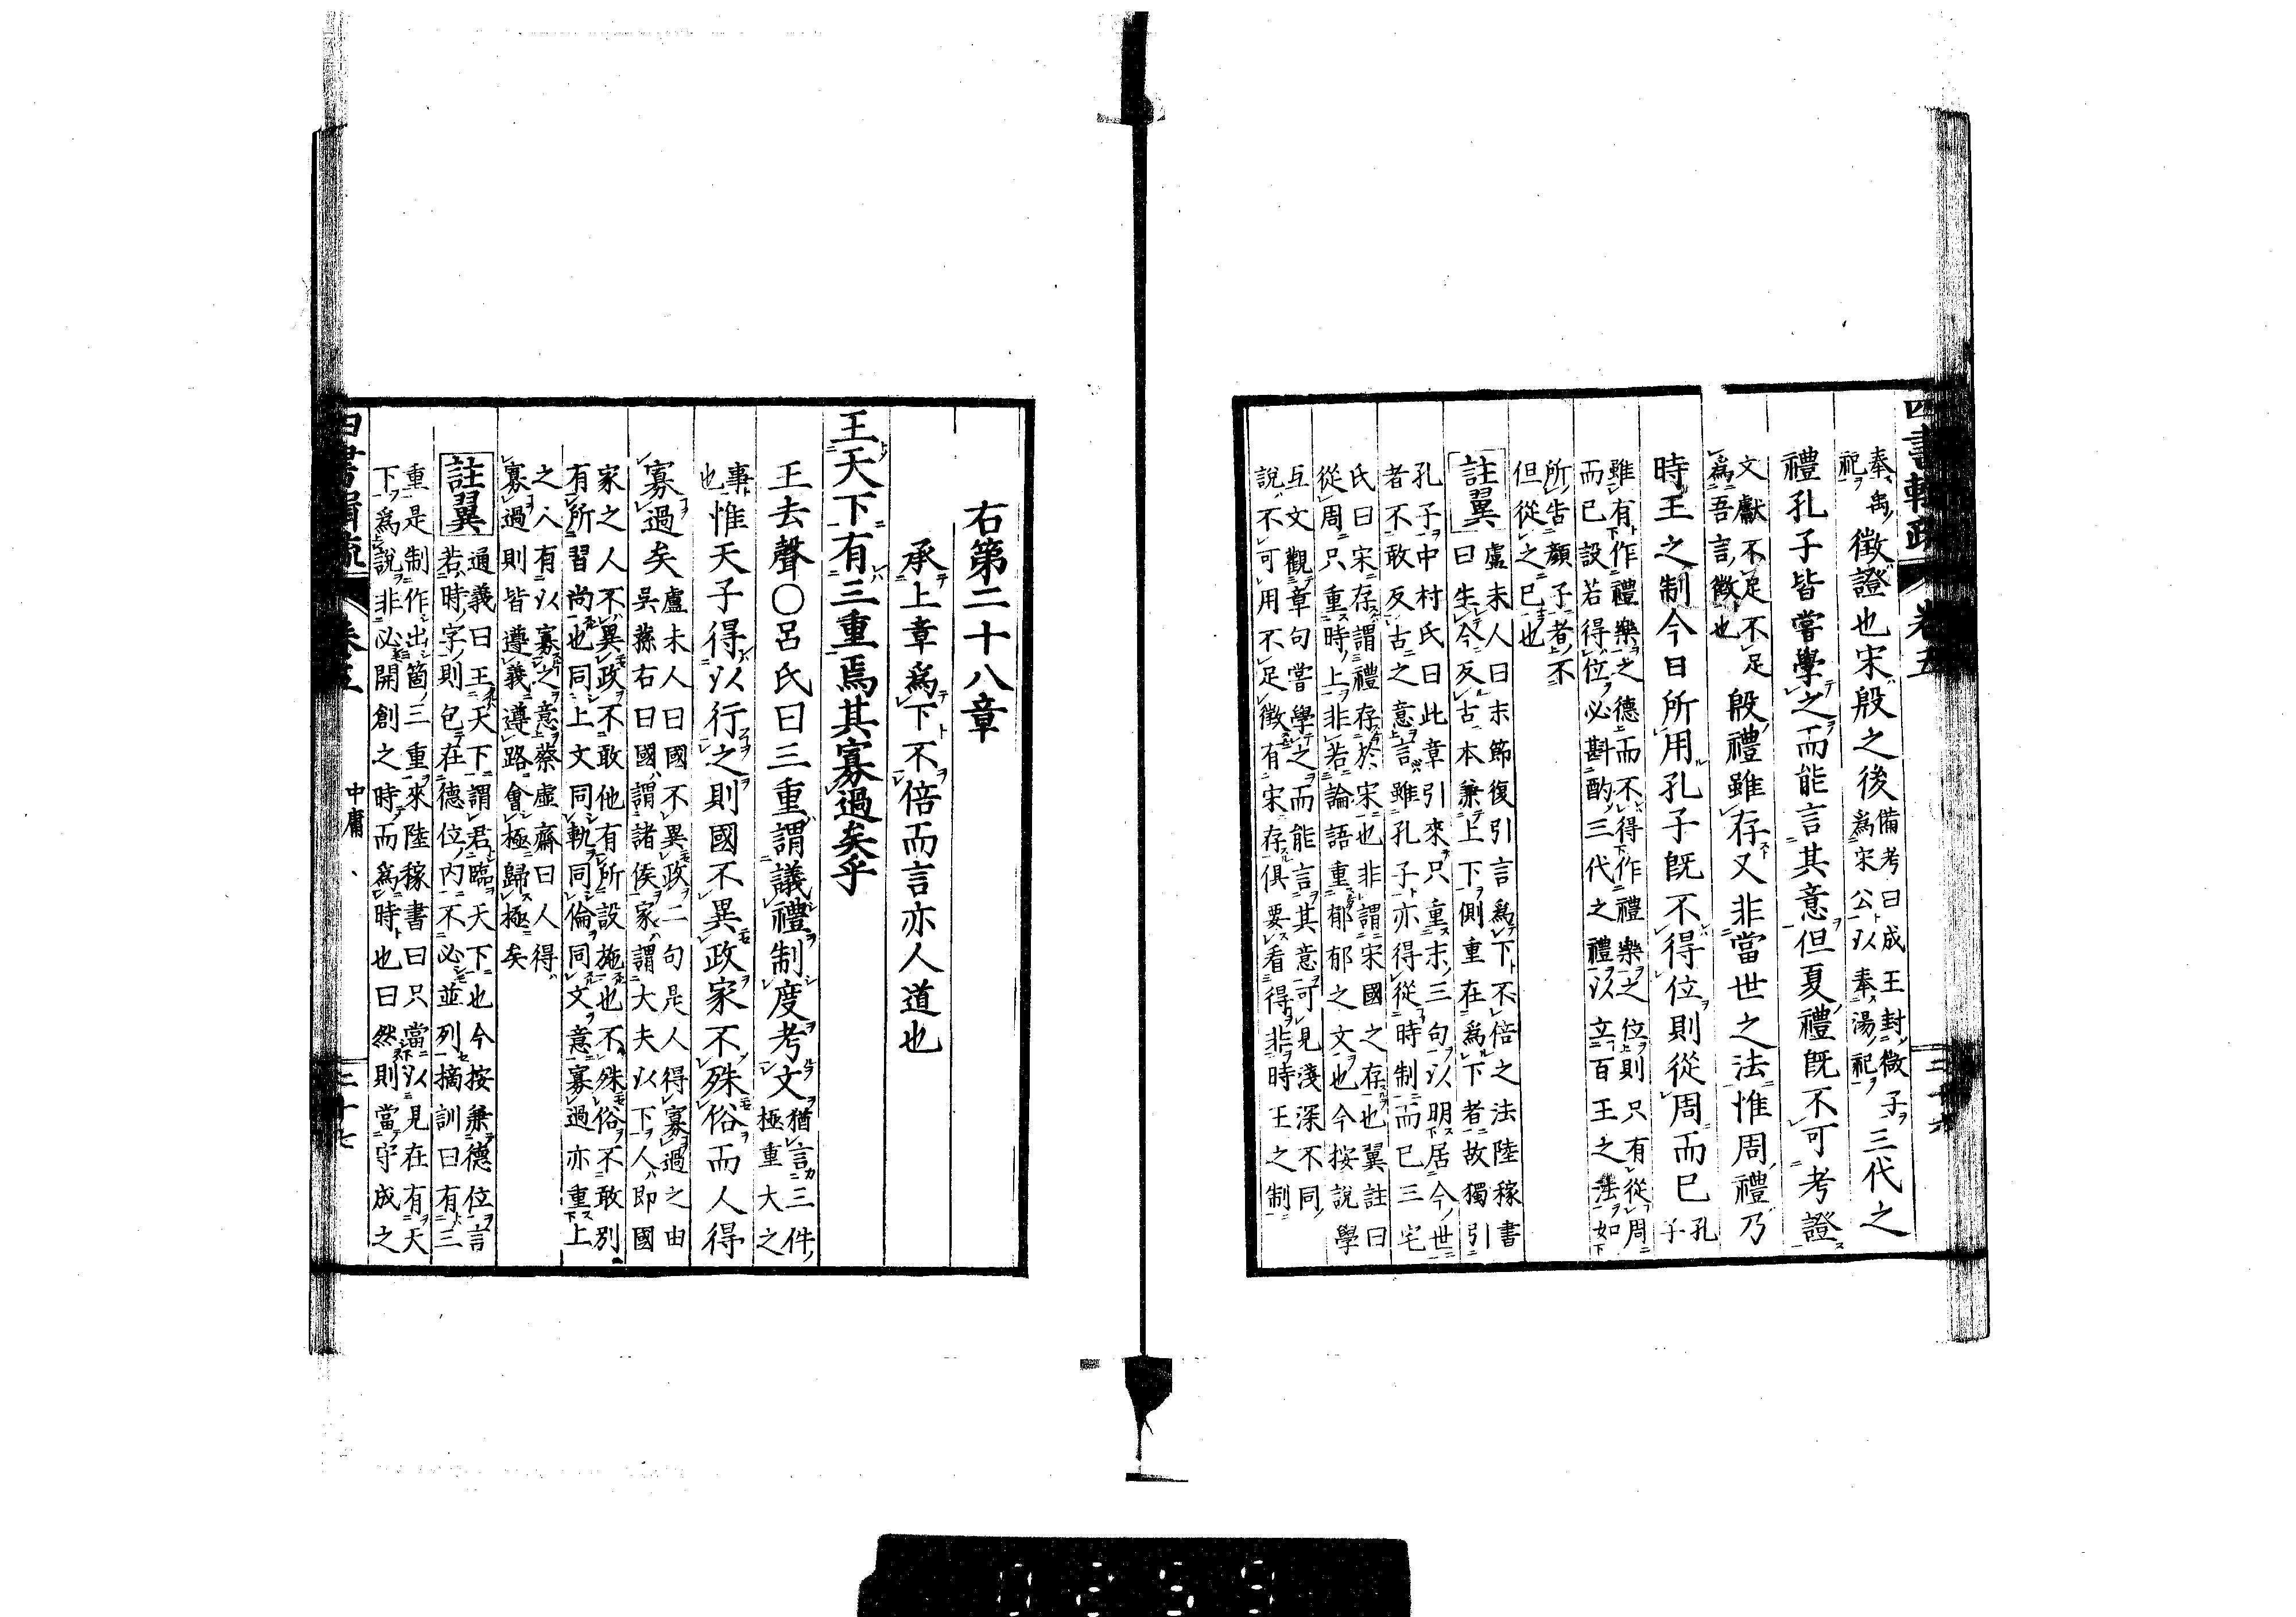 四書輯疏 卷五 三十六
奉禹
祀
徵證也宋殷之後
備考曰成王封微子
爲宋公以奉湯祀
三代之
禮孔子皆嘗學之而能言其意但夏禮旣不可考證
文獻不足不足
爲吾言徵也
殷禮雖存又非當世之法惟周禮乃
時王之制今日所用孔子旣不得位則從周而已
孔
子
雖有作禮樂之德而不得作禮樂之位則只有從周
而已設若得位必斟酌三代之禮以立百王之法如
所告顏子者不
但從之已也
註翼
盧未人曰末節復引言爲下不倍之法陸稼書
曰生今反古本兼上下側重在爲下者故獨引
孔子中村氏曰此章引來只重末三句以明居今世
者不敢反古之意言雖孔子亦得從時制而已三宅
氏曰宋存謂禮存於宋也非謂宋國之存也翼註曰
從周只重時上非若論語重郁郁之文也今按說學
互文觀章句嘗學之而能言其意可見淺深不同
說不可用不足徵有宋存俱要看得非時王之制
右第二十八章
承上章爲下不倍而言亦人道也
王天下有三重焉其寡過矣乎
王去聲○呂氏曰三重謂議禮制度考文
猶言三件
極重大之
事
也
惟天子得以行之則國不異政家不殊俗而人得
寡過矣
盧未人曰國不異政二句是人得寡過之由
吳蓀右曰國謂諸侯家謂大夫以下人即國
家之人不異政不敢他有所設施也不殊俗不敢別
有所習尚也同上文同軌同倫同文意寡過亦重上
之人有以寡之意蔡虛齋曰人得
寡過則皆遵義遵路會極歸極矣
註翼
通義曰王天下謂君臨天下也今按兼德位言
若時字則包在德位內不必並列摘訓曰有三
重是制作出箇三重來陸稼書曰只當以見在有天
下爲說非必開創之時而爲時也曰然則當守成之
四書輯疏 卷五 中庸 三十七